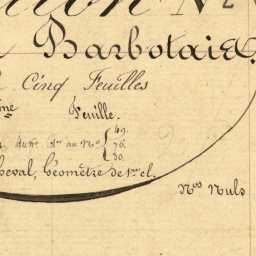 ion N
Barbotaie
Cinq Feuilles
ne Feuille.
du n° 1er au N° { 49.
70.
30.
heval, Géomètre de 1re cl.
Nos Nuls